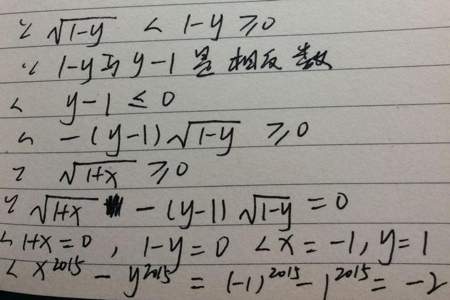 ∵ √(1-y) ∴ 1-y ≥ 0
∵ 1-y与y-1是相反数
∴ y-1 ≤ 0
∴ -(y-1)√(1-y) ≥ 0
∵ √(1+x) ≥ 0
∵ √(1+x) -(y-1)√(1-y) = 0
∴ 1+x=0, 1-y=0 ∴ x=-1, y=1
∴ x^2015 - y^2015 = (-1)^2015 - 1^2015 = -2